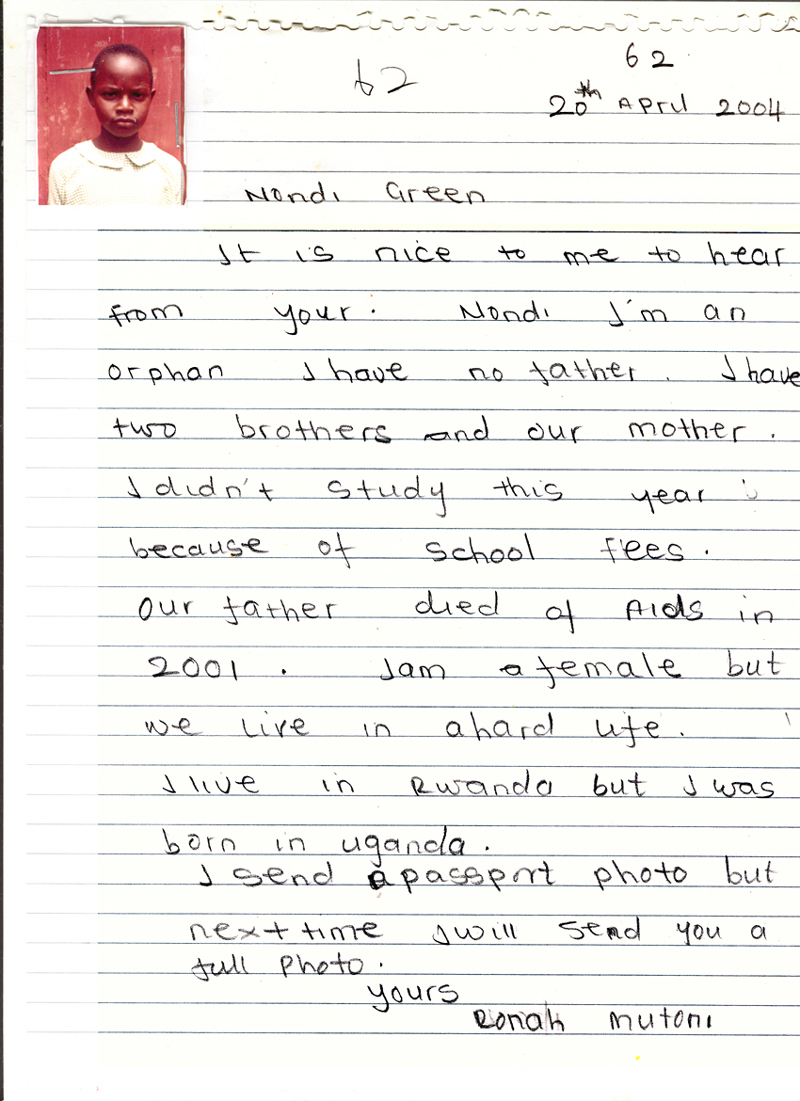 62
62
20th April 2004
Nondi Green
It is nice to me to hear
from your. Nondi I'm an
orphan I have no father. I have
two brothers and our mother.
I didn't study this year
because of school fees.
our father died of Aids in
2001. Iam a female but
we live in a hard life.
I live in Rwanda but I was
born in uganda.
I send a passport photo but
next time I will send you a
full photo.
yours
Ronah Mutoni